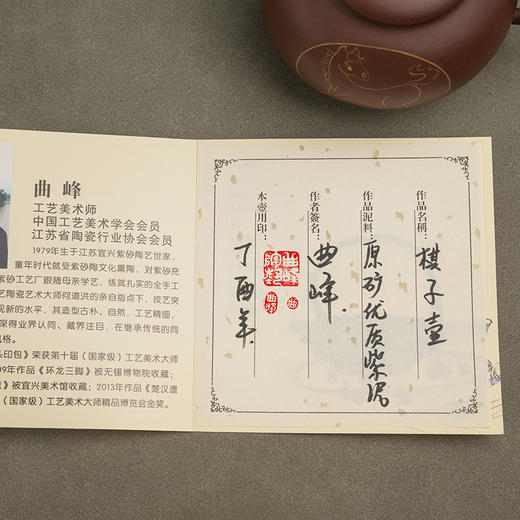 曲峰
工艺美术师
中国工艺美术学会会员
江苏省陶瓷行业协会会员
1979年生于江苏宜兴紫砂陶艺世家，
童年时代就受紫砂陶文化熏陶，对紫砂充
紫砂工艺厂跟随母亲学艺，练就扎实的全手工
艺陶瓷艺术大师何道洪的亲自指点下，技艺突
见新的水平，其造型古朴、自然，工艺精细，
深得业界认同、藏界注目，在继承传统的同
风格。
头印包》荣获第十届（国家级）工艺美术大师
09年作品《环龙三脚》被无锡博物院收藏；
》被宜兴美术馆收藏；2013年作品《楚汉遗
（国家级）工艺美术大师精品博览会金奖。
作品名稱：棋子壶
作品泥料：原矿优质紫泥
作者簽名：曲峰
本壺用印：
丁酉年